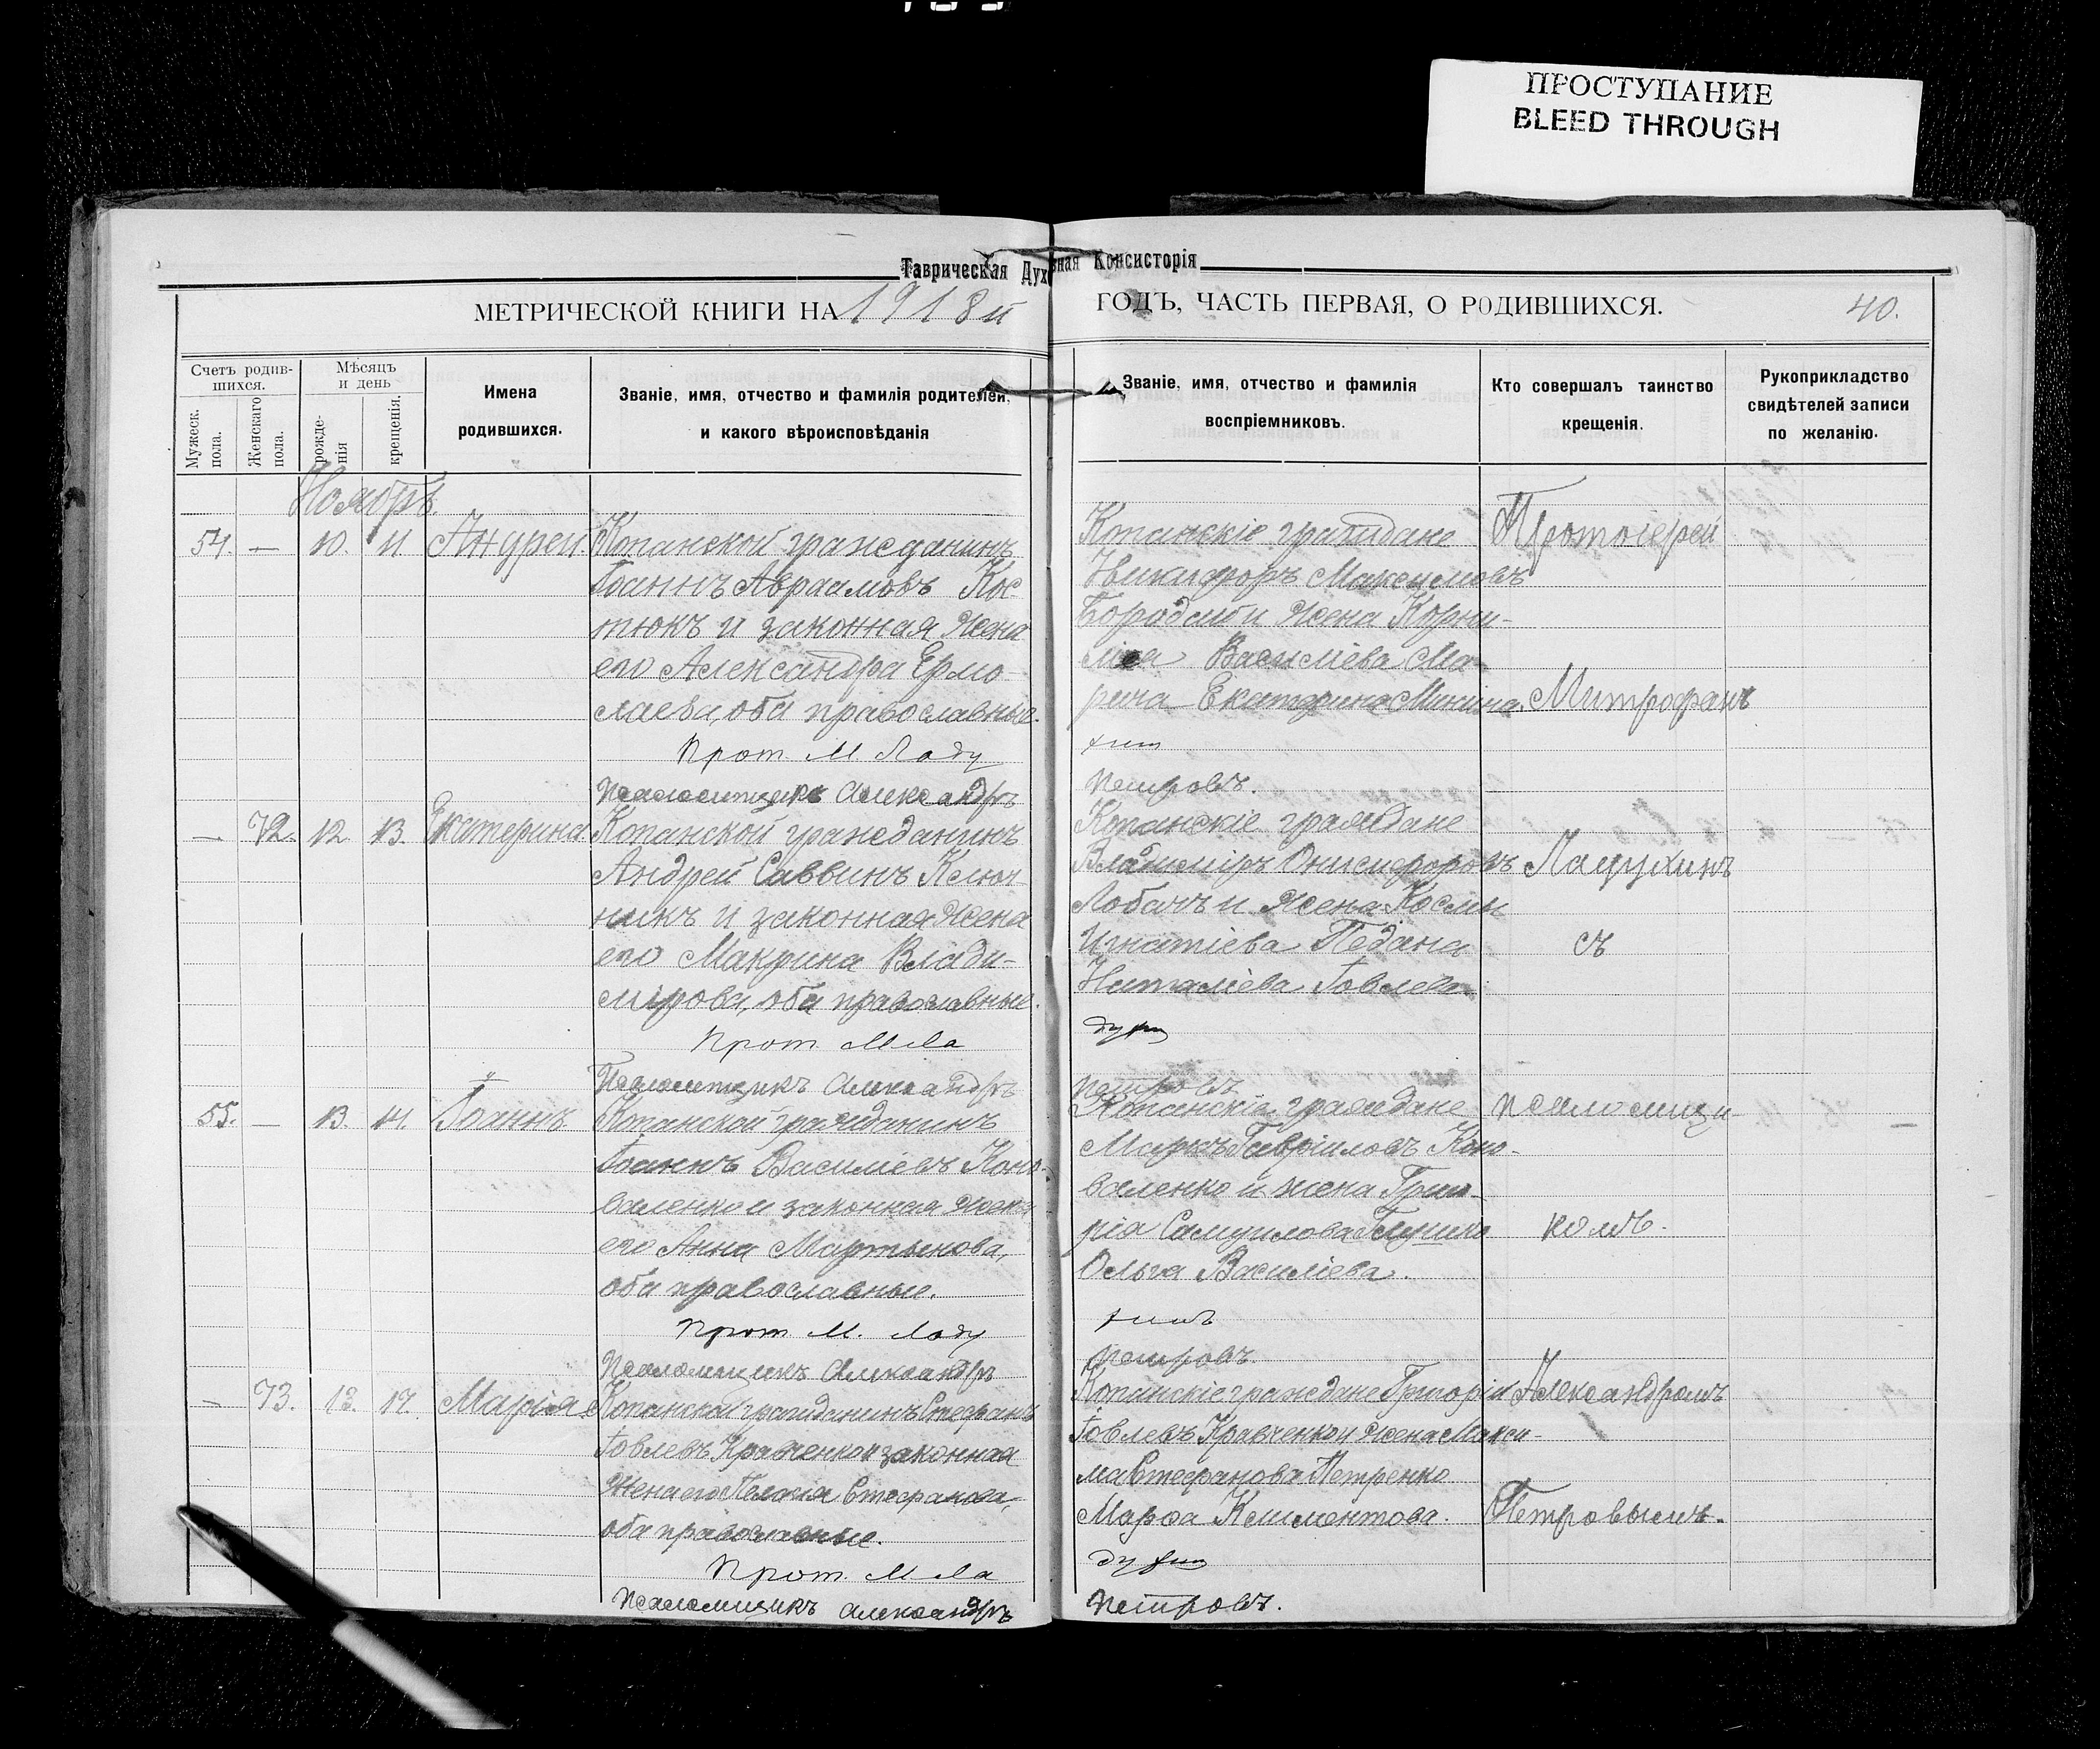 ПРОСТУПАНИЕ
BLEED THROUGH
Таврическая Духовная Консисторія
МЕТРИЧЕСКОЙ КНИГИ НА 1918й
ГОДЪ, ЧАСТЬ ПЕРВАЯ, О РОДИВШИХСЯ.
40.
Счетъ родив-
шихся.
Мужеск.
пола.
Женскаго
пола.
Мѣсяцъ
и день
рожде-
нія
крещенія.
Имена
родившихся.
Званіе, имя, отчество и фамилія родителей,
и какого вѣроисповѣданія
Званіе, имя, отчество и фамилія
воспріемниковъ.
Кто совершалъ таинство
крещенія.
Рукоприкладство
свидѣтелей записи
по желанію.
Ноябрь.
54. — 10. 11 Андрей.
Копанской гражданинъ
Іоаннъ Авраамовъ Кос-
тюкъ и законная жена
его Александра Ермо-
лаева, оба православные.
Прот. М. Ладу
Псаломщикъ Александръ
Копанскіе граждане
Никифоръ Максимовъ
и жена Корни-
лія Василіева Ма-
рича Екатерина Минина.
хин
Петровъ.
— 72. 12. 13. Екатерина.
Копанской гражданинъ
Андрей Саввинъ Ключ-
никъ и законная жена
его Макрина Влади-
мірова, оба православные.
Прот. М Ла
Псаломщикъ Александръ
Копанскіе граждане
Владиміръ Онисифоровъ
Лобачъ и жена Космы
Игнатіева Педана
Наталіева Іовлева
духин
Петровъ
55. — 13. 14. Іоаннъ
Копанской гражданинъ
Іоаннъ Василіевъ Коно-
валенко и законная жена
его Анна Мартынова,
оба православные.
Прот М. Ладу
Псаломщикъ Александръ
Копанскіе граждане
Маркъ Гавріиловъ Коно-
валенко и жена Григо-
рія Самуилова Глушко
Ольга Василіева.
хинъ
Петровъ.
— 73. 13. 17. Марія
Копанской гражданинъ Стефанъ
Іовлевъ Кравченко и законная
жена его Пелагія Стефанова,
оба православные.
Прот. М Ла
Псаломщикъ Александръ
Копанскіе граждане Григорій
Іовлевъ Кравченко и жена Макси-
ма Стефанова Петренко
Марфа Климентова.
духин
Петровъ.
Протоіерей
Митрофанъ
Ладухинъ
съ
псаломщи-
комъ
Александромъ
Петровымъ.